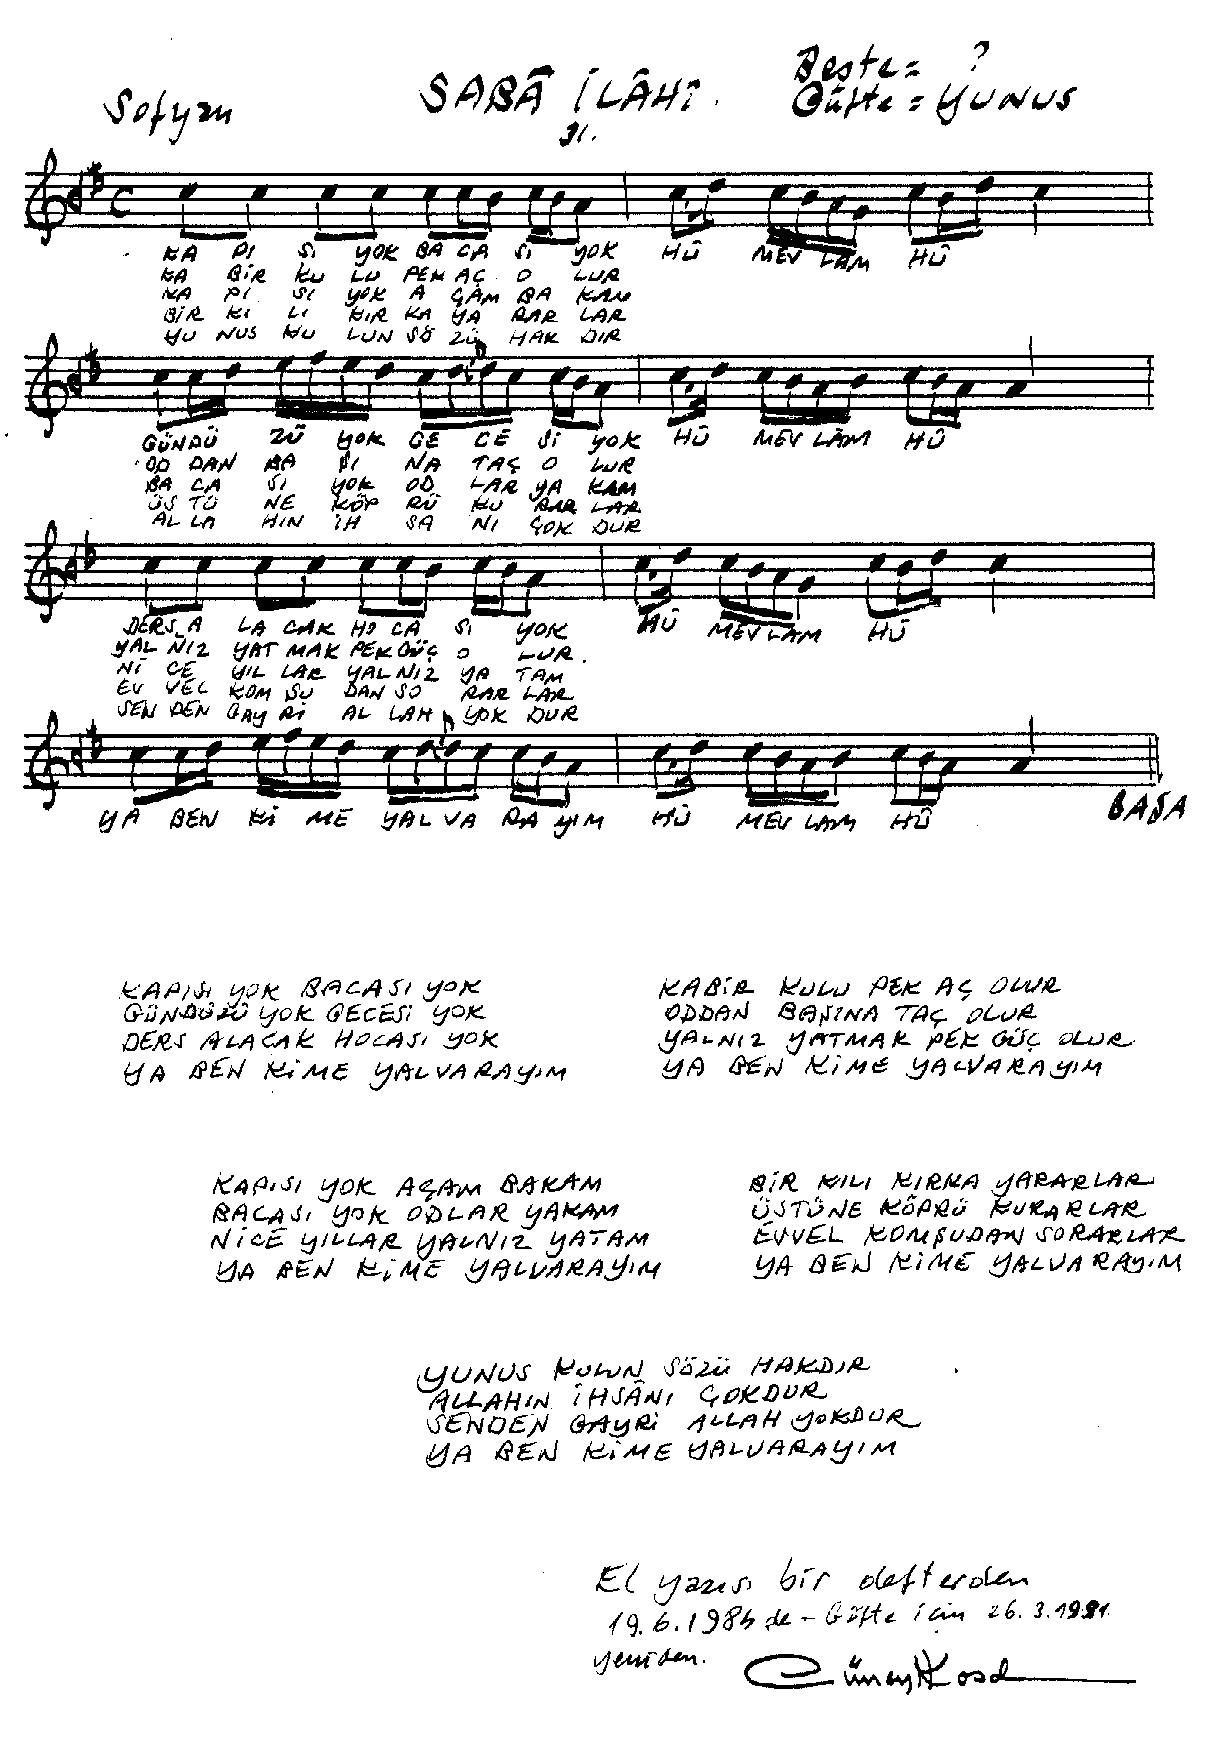 Sofyan
SABÂ İLÂHÎ.
31.
Beste = ?
Güfte = YUNUS
KA PI SI YOK BA CA SI YOK HÛ MEV LÂM HÛ
KA BİR KU LU PEK AÇ O LUR
KA PI SI YOK A ÇAM BA KAM
BİR KI LI KIR KA YA RAR LAR
YU NUS KU LUN SÖ ZÜ HAK DIR
GÜNDÜ ZÜ YOK GE CE Sİ YOK HÛ MEV LÂM HÛ
OD DAN BA ŞI NA TAÇ O LUR
BA CA SI YOK OD LAR YA KAM
ÜS TÜ NE KÖP RÜ KU RAR LAR
AL LA HIN İH SA NI ÇOK DUR
DERS A LA CAK HO CA SI YOK HÛ MEV LÂM HÛ
YAL NIZ YAT MAK PEK GÜÇ O LUR.
Nİ CE YIL LAR YAL NIZ YA TAM
EV VEL KOM ŞU DAN SO RAR LAR
SEN DEN GAY Rİ AL LAH YOK DUR
YA BEN Kİ ME YAL VA RA YIM HÛ MEV LAM HÛ
BAŞA
KAPISI YOK BACASI YOK
GÜNDÜZÜ YOK GECESİ YOK
DERS ALACAK HOCASI YOK
YA BEN KİME YALVARAYIM
KABİR KULU PEK AÇ OLUR
ODDAN BAŞINA TAÇ OLUR
YALNIZ YATMAK PEK GÜÇ OLUR
YA BEN KİME YALVARAYIM
KAPISI YOK AÇAM BAKAM
BACASI YOK ODLAR YAKAM
NİCE YILLAR YALNIZ YATAM
YA BEN KİME YALVARAYIM
BİR KILI KIRKA YARARLAR
ÜSTÜNE KÖPRÜ KURARLAR
EVVEL KOMŞUDAN SORARLAR
YA BEN KİME YALVARAYIM
YUNUS KULUN SÖZÜ HAKDIR
ALLAHIN İHSÂNI ÇOKDUR
SENDEN GAYRİ ALLAH YOKDUR
YA BEN KİME YALVARAYIM
El yazısı bir defterden
19.6.1985 de - Güfte için 26.3.1991
yeniden.